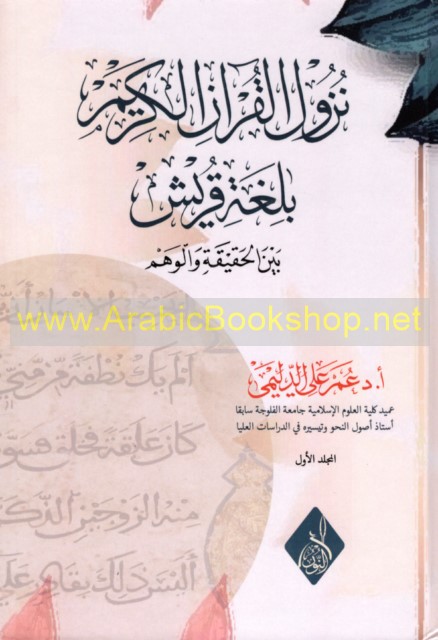 نُزُولُ القُرآنِ الكَرِيمِ
بِلُغَةِ قُرَيْش
بَيْنَ الحَقِيْقَةِ وَالوَهَم
www.ArabicBookshop.net
أ.د عُمَر عَلي الدّليمي
عميد كلية العلوم الإسلامية جامعة الفلوجة سابقا
أستاذ أصول النحو وتيسيره في الدراسات العليا
المجلد الأول
ألم يك نطفة من مني
كان علقة فخلق فسوى
منه الزوجين الذكر
أليس ذلك بقادر على